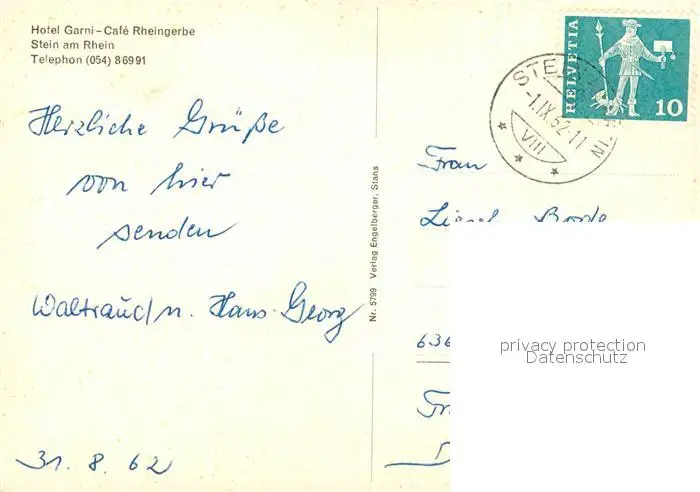 Hotel Garni-Café Rheingerbe
Stein am Rhein
Telephon (054) 86991
Herzliche Grüße
von hier
senden
Waltraud u. Hans-Georg
31. 8. 62
Nr. 5799 Verlag Engelberger, Stans
HELVETIA
10
-1.IX.62-11
VIII
Frau
636
privacy protection
Datenschutz